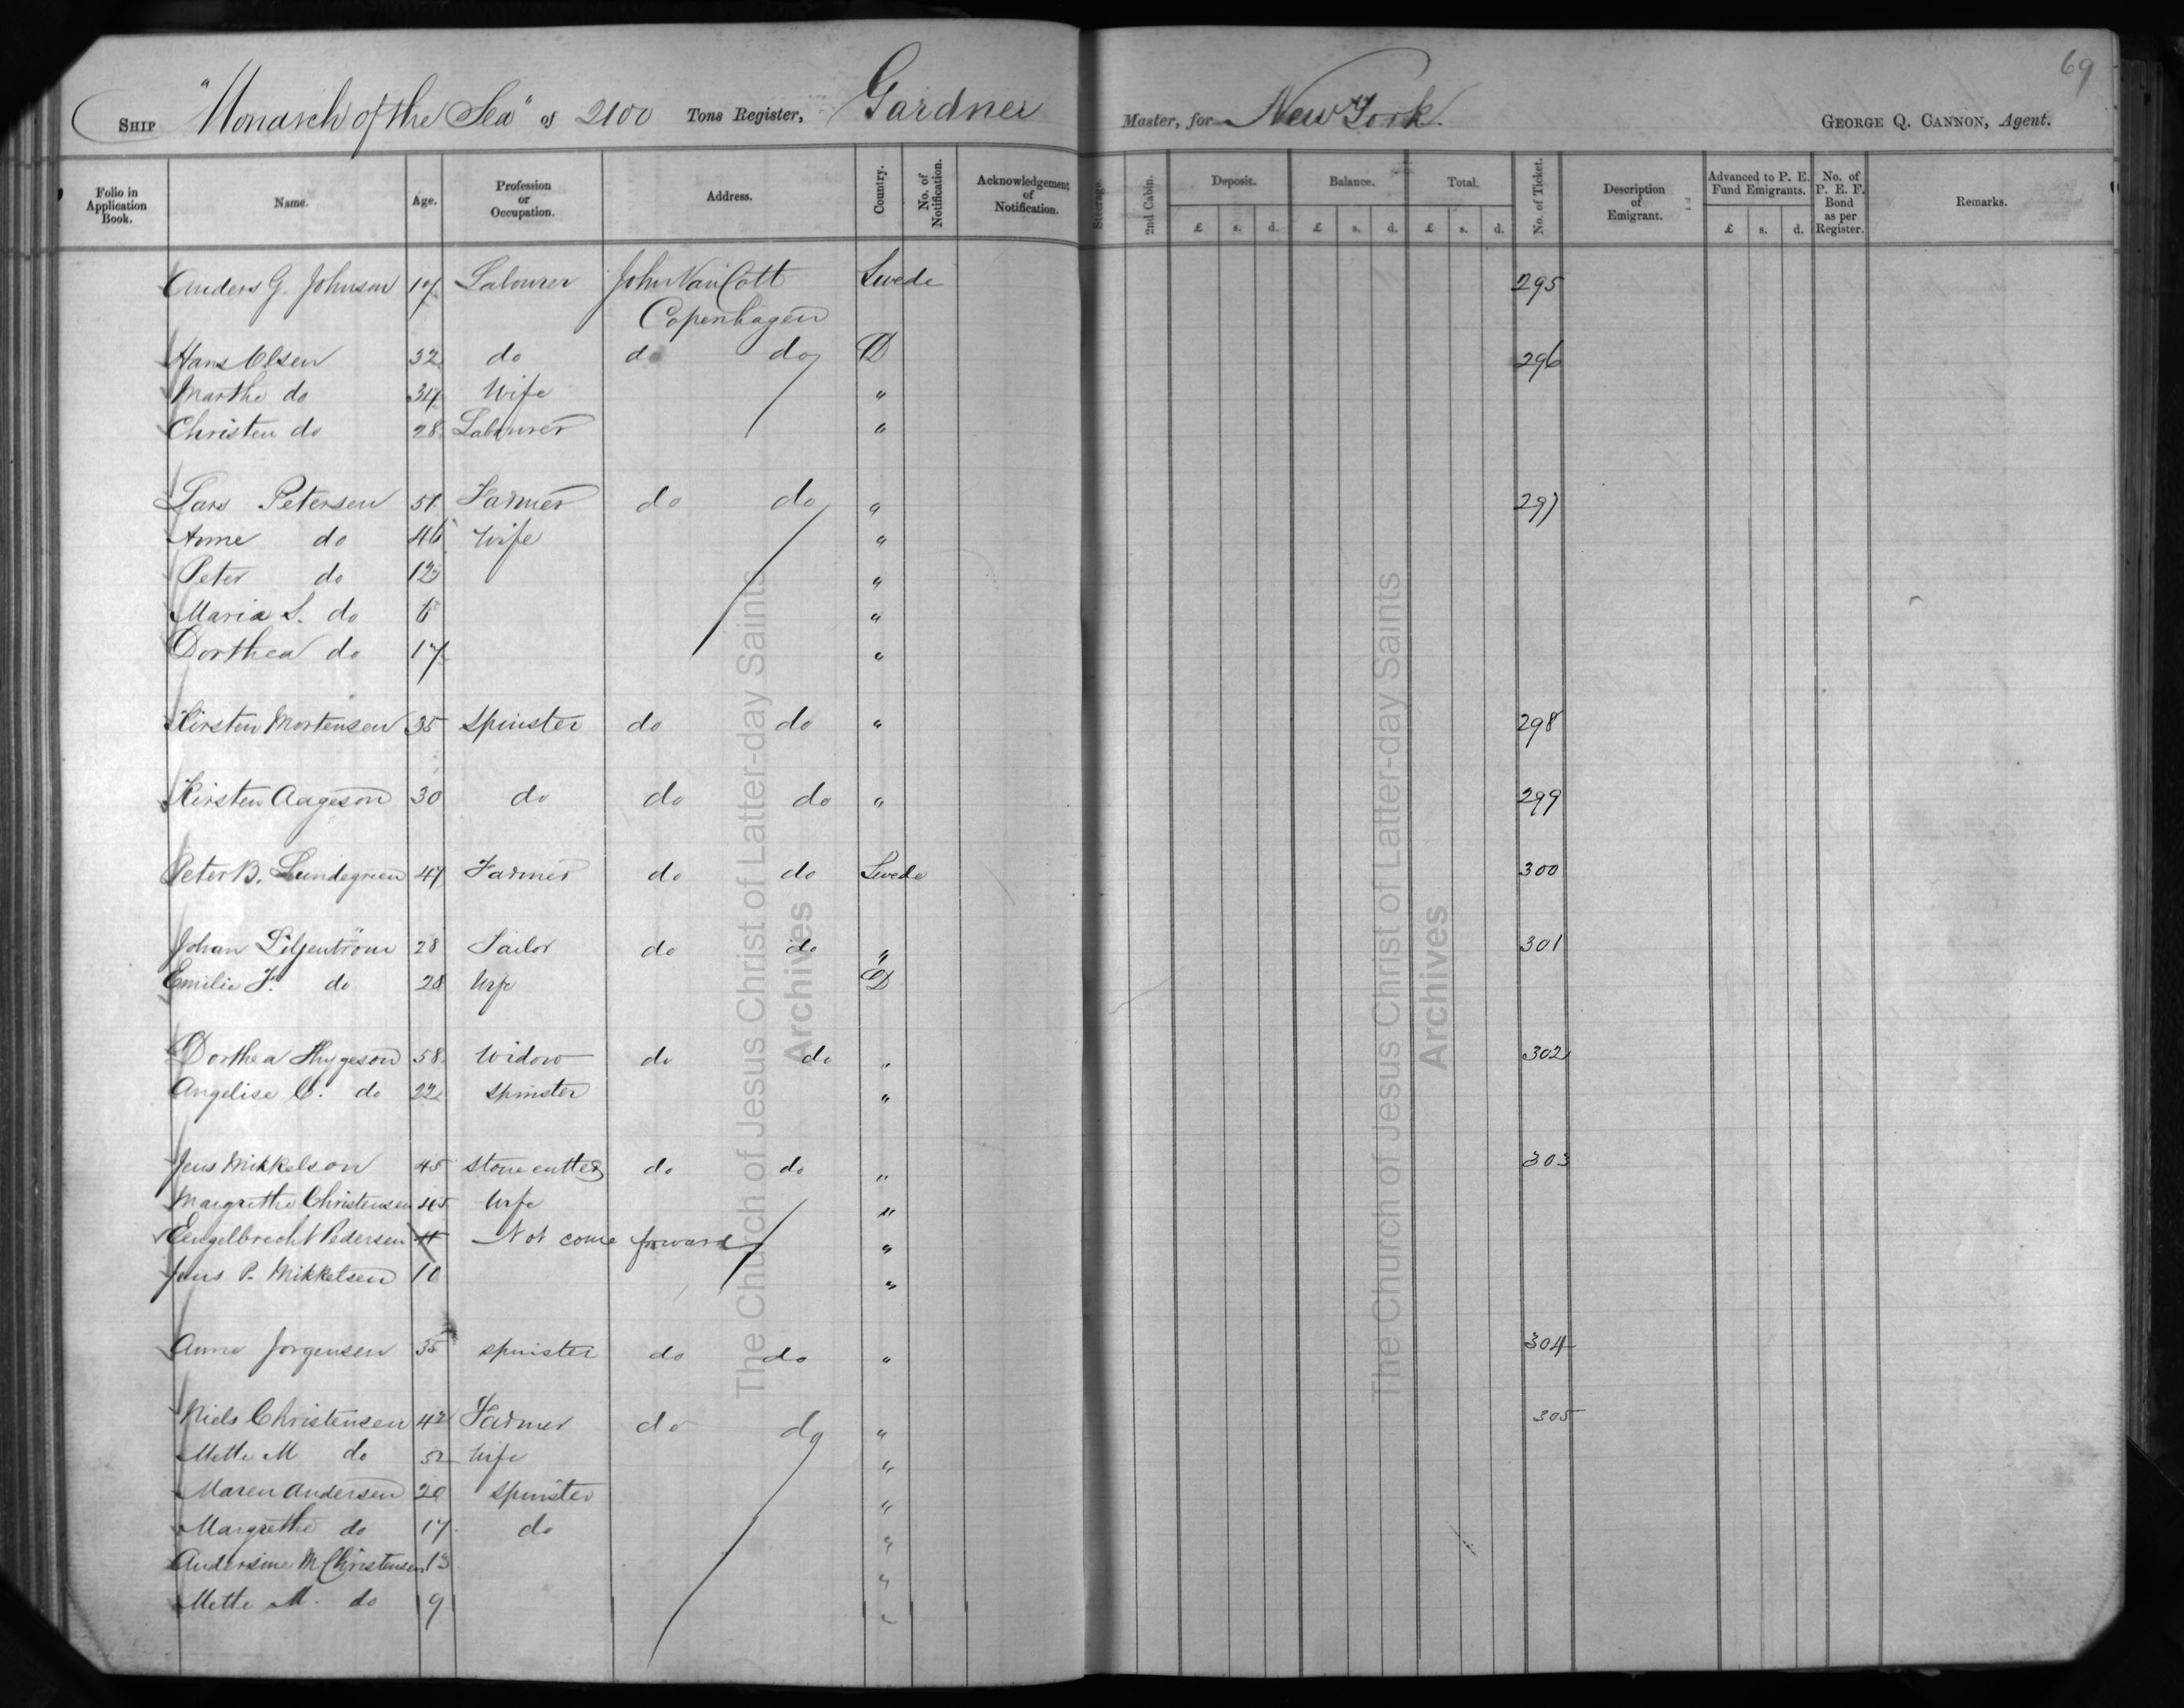 69
SHIP "Monarch of the Sea" of 2100 Tons Register, Gardner Master, for New York. GEORGE Q. CANNON, Agent.
Folio in Application Book. Name. Age. Profession or Occupation. Address. Country. No. of Notification. Acknowledgement of Notification. Steerage. 2nd Cabin. Deposit. Balance. Total. No. of Ticket. Description of Emigrant. Advanced to P. E. Fund Emigrants. No. of P. E. F. Bond as per Register. Remarks.
£ s. d. £ s. d. £ s. d. £ s. d.
Anders G. Johnson 17 Labourer John Van Cott Swede 295
Copenhagen
Hans Olsen 32 do do do D 296
Marthe do 34 Wife "
Christen do 28 Labourer "
Lars Petersen 51 Farmer do do " 297
Anne do 46 Wife "
Peter do 12 "
Maria S. do 6 "
Dorthea do 17 "
Kirsten Mortensen 35 Spinster do do " 298
Kirsten Aageson 30 do do do " 299
Peter B. Lundegreen 47 Farmer do do Swede 300
Johan Liljentröm 28 Tailor do do " 301
Emilie F. do 28 Wife D
Dorthea Thygeson 58 Widow do do " 302
Angelise C. do 22 Spinster "
Jens Mikkelson 45 Stone cutter do do " 303
Margrethe Christensen 45 Wife "
Eengelbrecht Pedersen 11 Not come forward "
Jens P. Mikkelsen 10 "
Anne Jorgensen 55 Spinster do do " 304
Niels Christensen 42 Farmer do do " 305
Mette M do 52 Wife "
Maren Andersen 20 Spinster "
Margrethe do 17 do "
Andersine M Christensen 13 "
Mette M. do 9 "
The Church of Jesus Christ of Latter-day Saints
Archives
The Church of Jesus Christ of Latter-day Saints
Archives